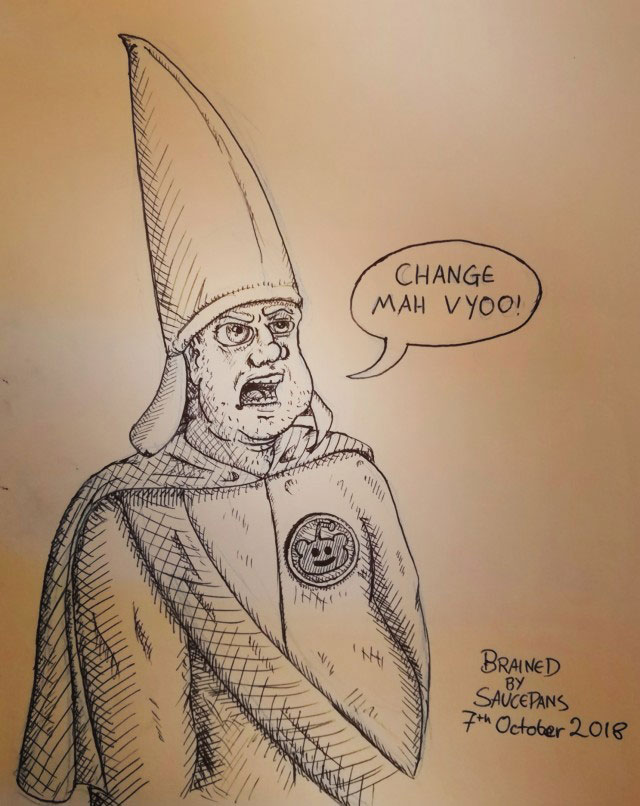 CHANGE
MAH VYOO!
BRAINED
BY
SAUCEPANS
7th October 2018